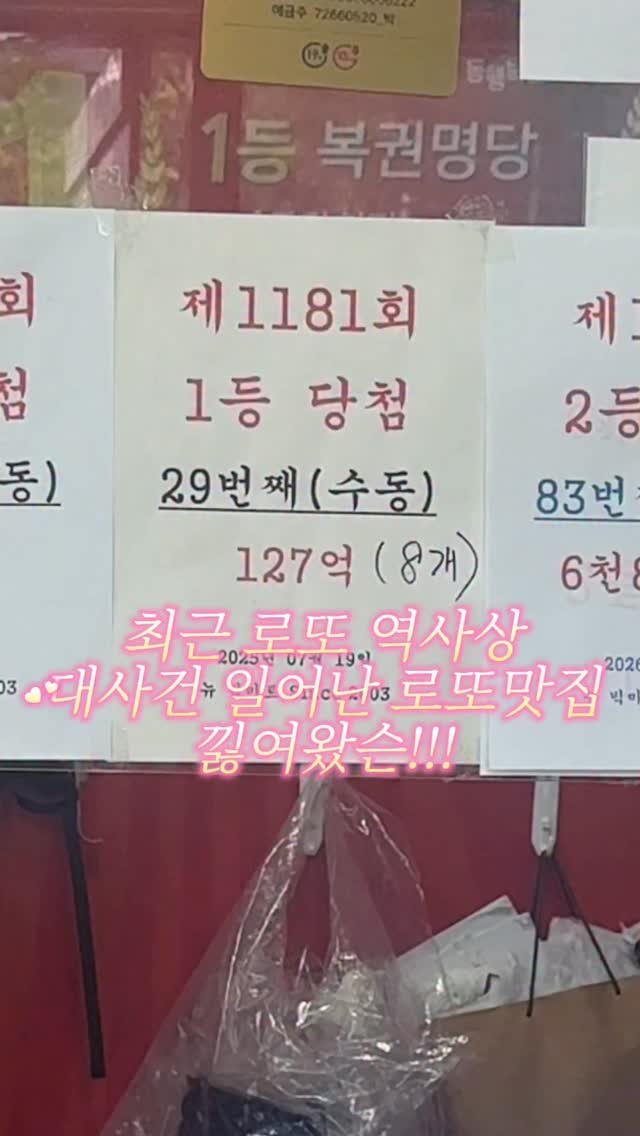 예금주 72660520_박
1등 복권명당
회
첨
동)
03
제1181회
1등 당첨
29번째(수동)
127억 (8개)
2025년 07월 19일
뉴
03
제1
2등
83번
6천8
2026
빅마
최근 로또 역사상
💕대사건 일어난 로또맛집
낋여왔슨!!!